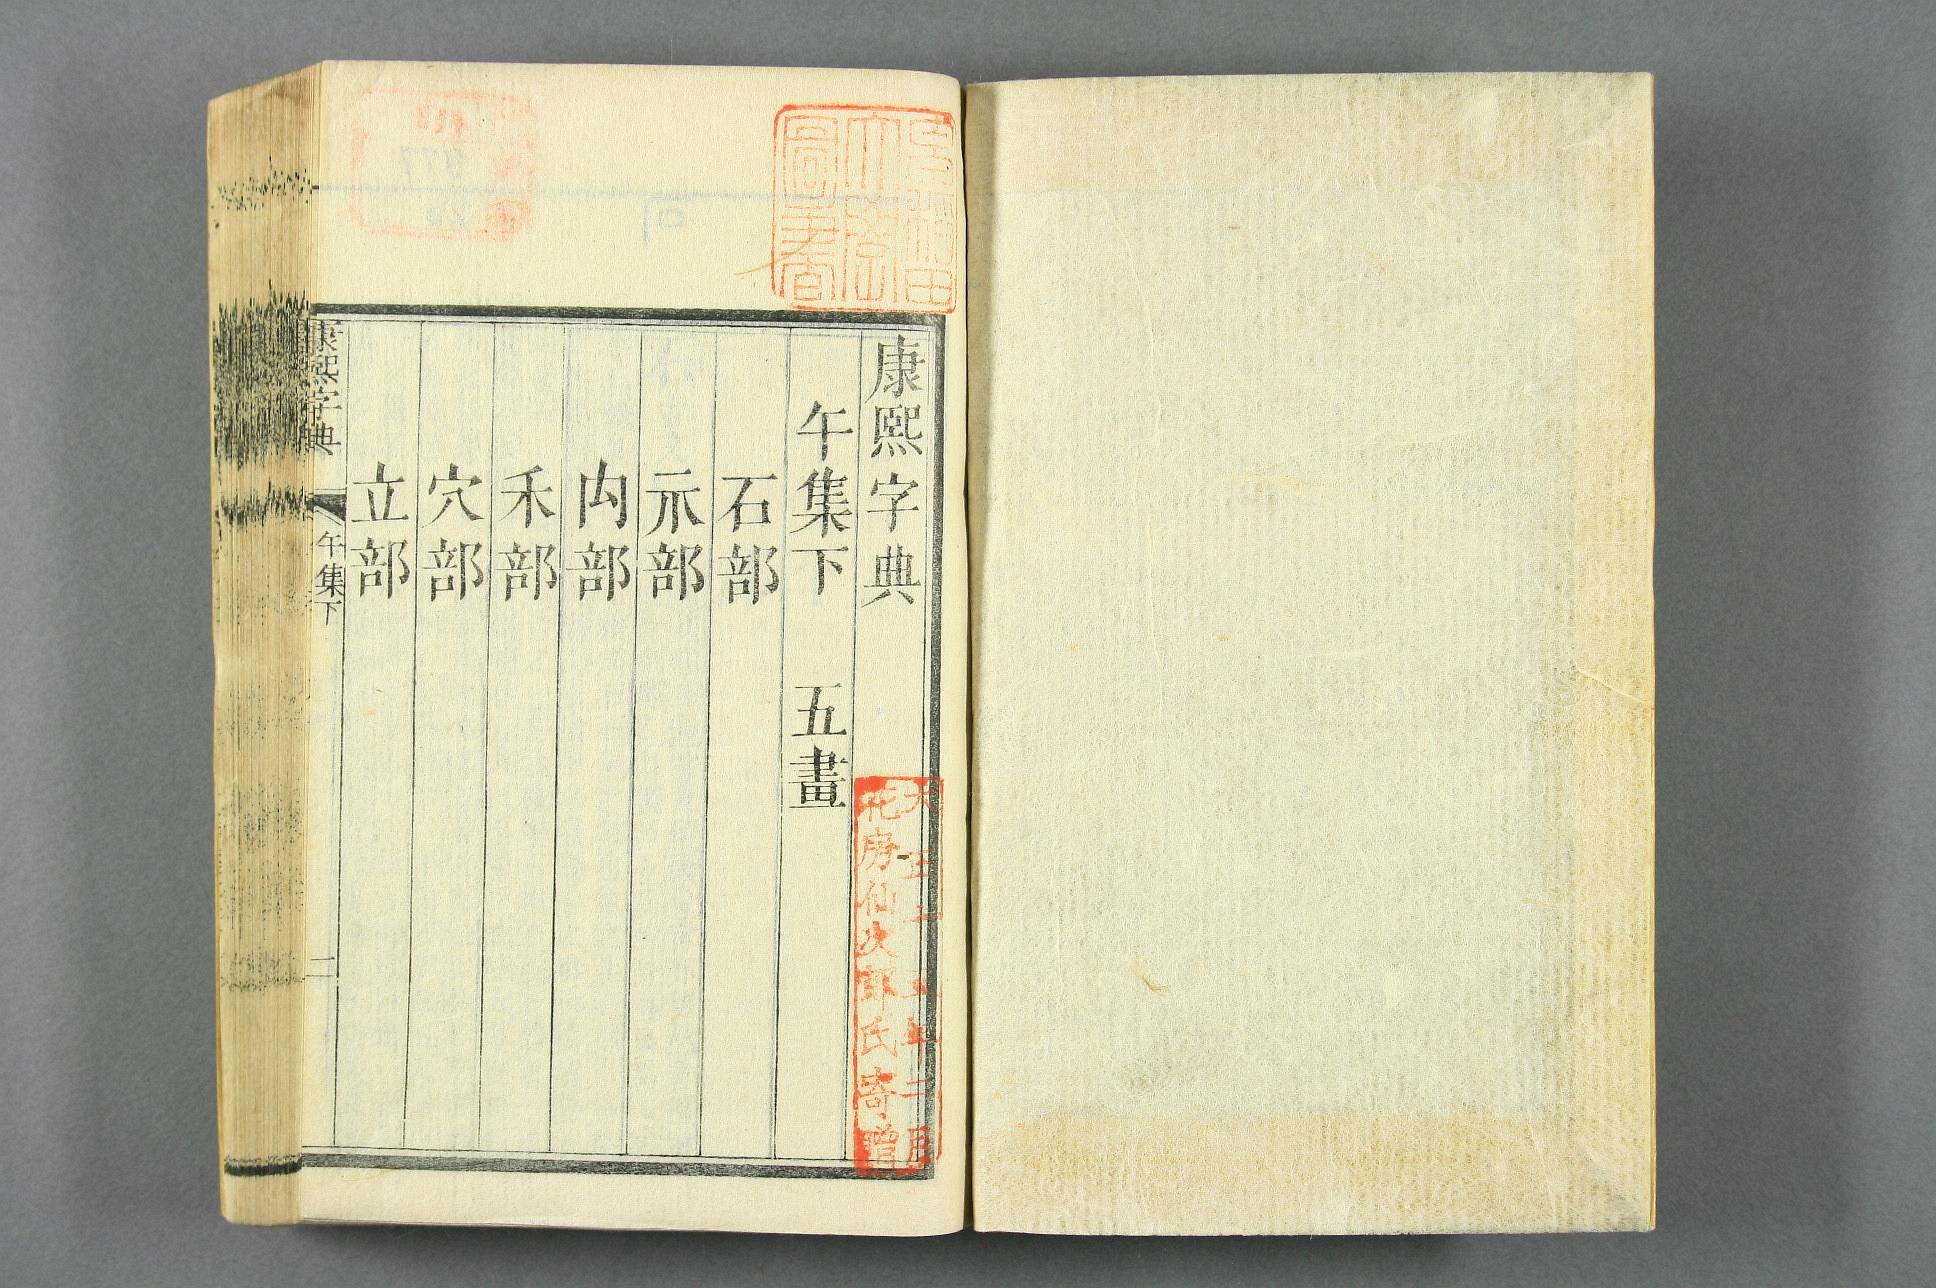 康熙字典
午集下 五畫
石部
示部
禸部
禾部
穴部
立部
康熙字典
午集下
一
早稲田大學圖書
花房仙次郎氏寄贈